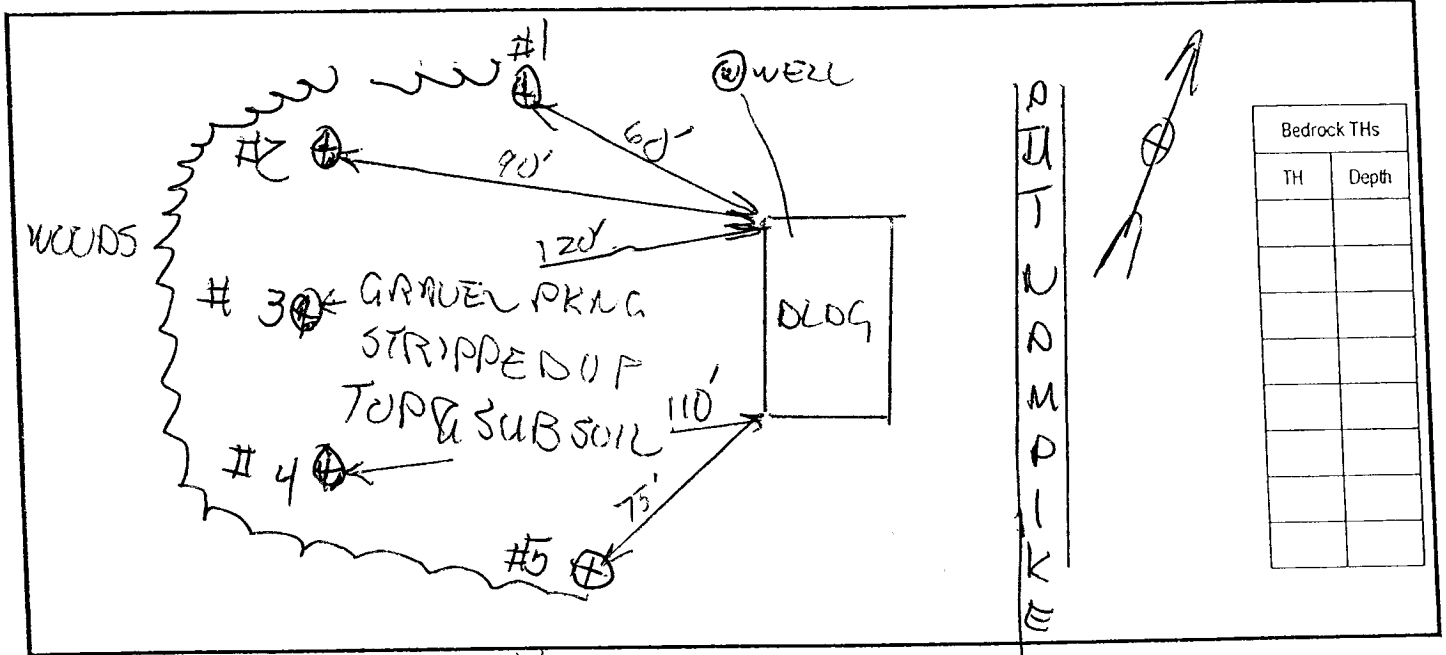 #1
Ⓦ WELL
60'
#2
90'
WOODS
120'
#3
GRAVEL PKNG
STRIPPED OF
TOP & SUBSOIL
110'
BLDG
#4
75'
#5
PUTNAM PIKE
Bedrock THs
TH Depth